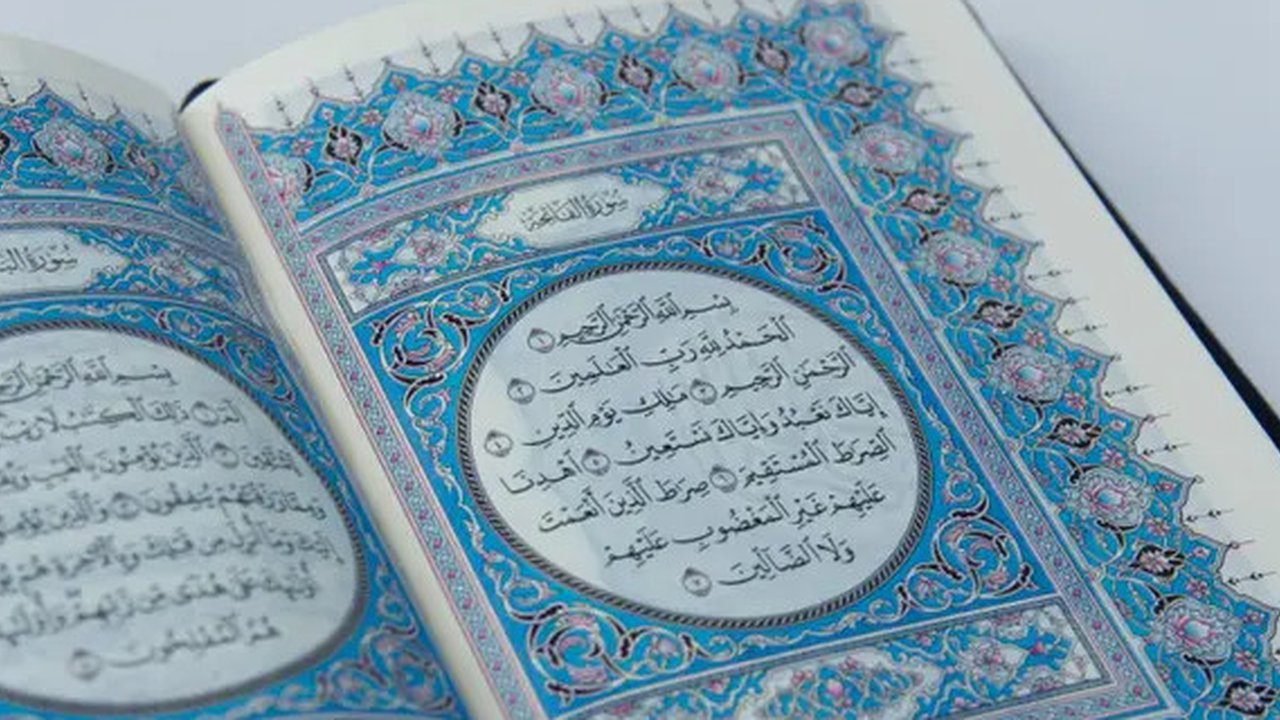 سُورَةُ الفَاتِحَة
بِسْمِ ٱللَّهِ ٱلرَّحْمَٰنِ ٱلرَّحِيمِ ١
ٱلْحَمْدُ لِلَّهِ رَبِّ ٱلْعَٰلَمِينَ ٢
ٱلرَّحْمَٰنِ ٱلرَّحِيمِ ٣ مَٰلِكِ يَوْمِ ٱلدِّينِ ٤
إِيَّاكَ نَعْبُدُ وَإِيَّاكَ نَسْتَعِينُ ٥ ٱهْدِنَا
ٱلصِّرَٰطَ ٱلْمُسْتَقِيمَ ٦ صِرَٰطَ ٱلَّذِينَ أَنْعَمْتَ
عَلَيْهِمْ غَيْرِ ٱلْمَغْضُوبِ عَلَيْهِمْ
وَلَا ٱلضَّآلِّينَ ٧
سُورَةُ
بِسْمِ ٱللَّهِ ٱلرَّحْمَٰنِ ٱلرَّحِيمِ
الٓمٓ ١ ذَٰلِكَ ٱلْكِتَٰبُ لَا رَيْبَ
ٱلَّذِينَ يُؤْمِنُونَ بِٱلْغَيْبِ
وَمِمَّا رَزَقْنَٰهُمْ يُنفِقُونَ ٣ وَٱلَّذِينَ
إِلَيْكَ وَمَآ أُنزِلَ مِن قَبْلِكَ وَبِٱلْءَاخِرَةِ هُمْ
أُو۟لَٰٓئِكَ عَلَىٰ هُدًى مِّن رَّبِّهِمْ
هُمُ ٱلْمُفْلِحُونَ ٥